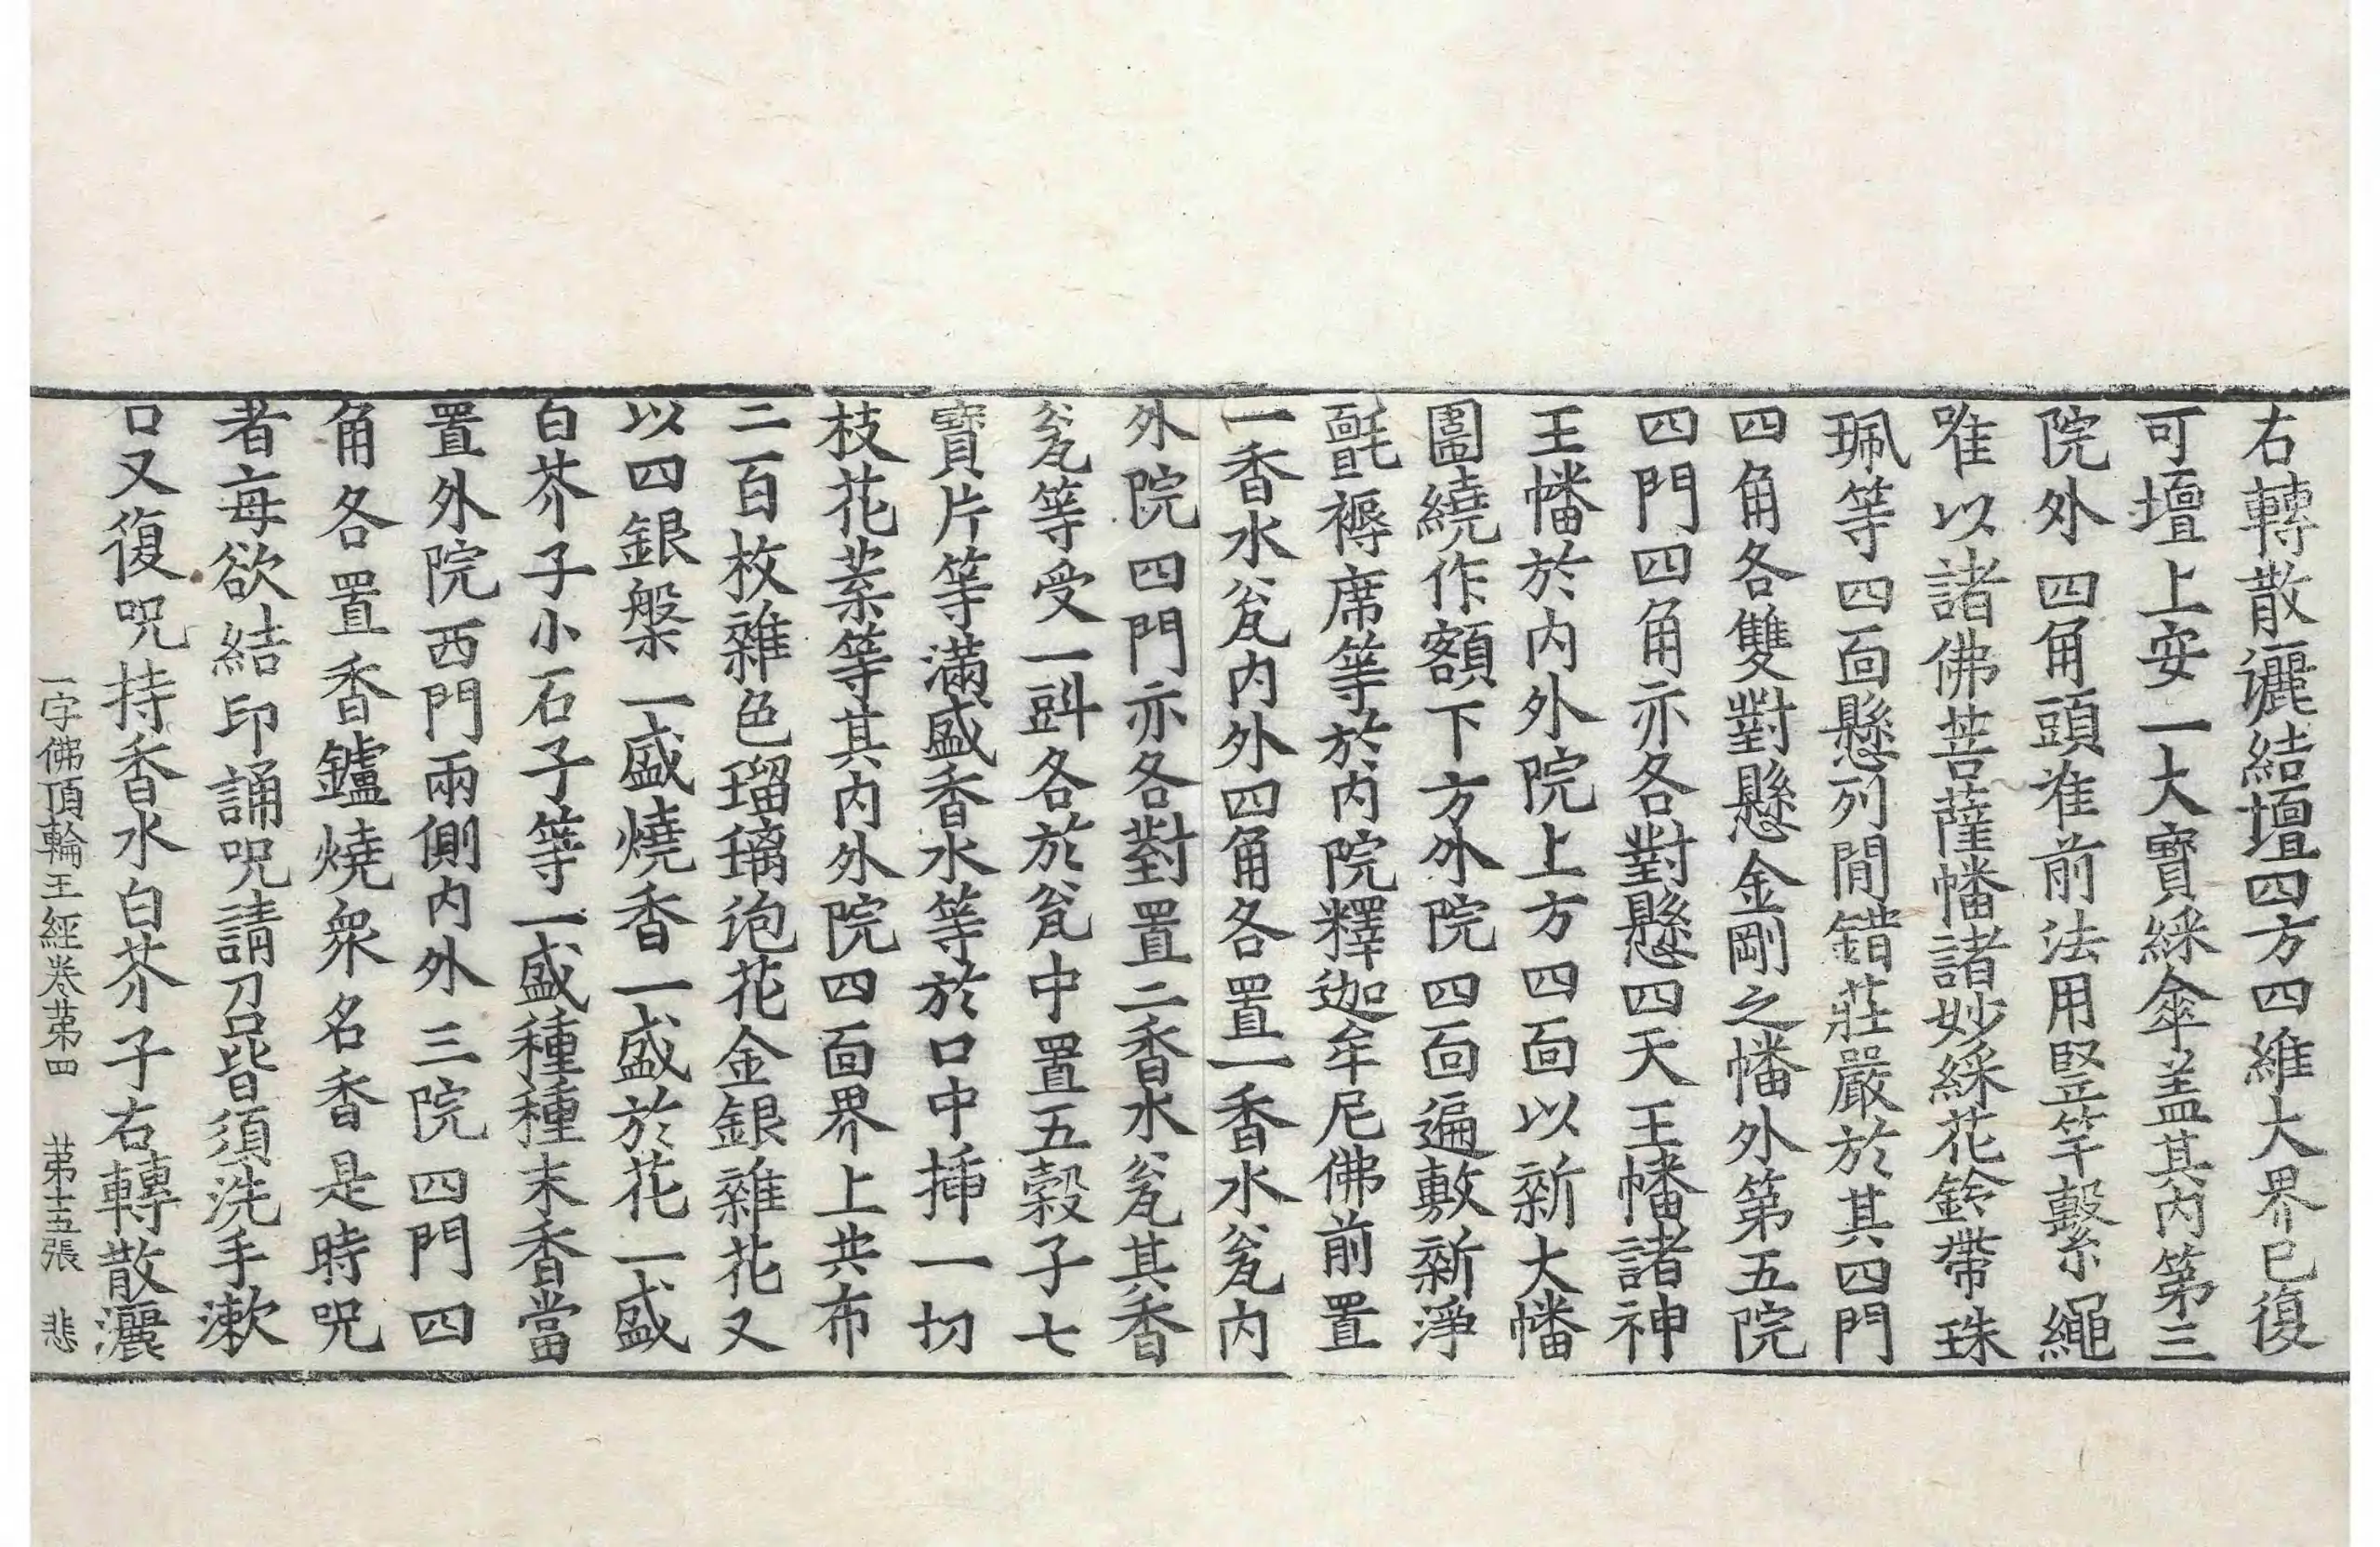 右轉散灑結壇四方四維大界已復
可壇上安一大寶綵傘盖其內第三
院外四角頭准前法用竪竿繫繩
唯以諸佛菩薩幡諸妙綵花鈴帶珠
珮等四面懸列間錯莊嚴於其四門
四角各雙對懸金剛之幡外第五院
四門四角亦各對懸四天王幡諸神
王幡於內外院上方四面以新大幡
圍繞作額下方外院四面遍敷新淨
㲲褥席等於內院釋迦牟尼佛前置
一香水瓮內外四角各置一香水瓮內
外院四門亦各對置二香水瓮其香
瓮等受一㪷各於瓮中置五穀子七
寶片等滿盛香水等於口中揷一切
枝花葉等其內外院四面界上共布
二百枚雜色瑠璃泡花金銀雜花又
以四銀槃一盛燒香一盛於花一盛
白芥子小石子等一盛種種末香當
置外院西門兩側內外三院四門四
角各置香鑪燒衆名香是時呪
者每欲結印誦呪請召皆須洗手漱
口又復呪持香水白芥子右轉散灑
一字佛頂輪王經卷苐四 苐十五張 悲